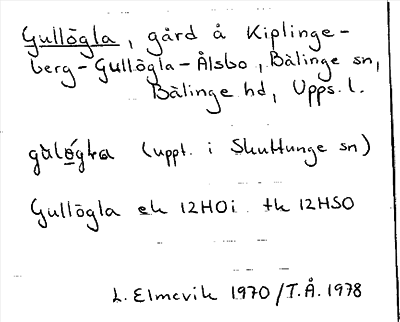 Gullögla, gård å Kiplinge-
berg-Gullögla-Ålsbo, Bälinge sn,
Bälinge hd, Upps. l.
(uppt. i Skuttunge sn)
Gullögla ek 12H0i tk 12HSO
L. Elmevik 1970/T.Å. 1978